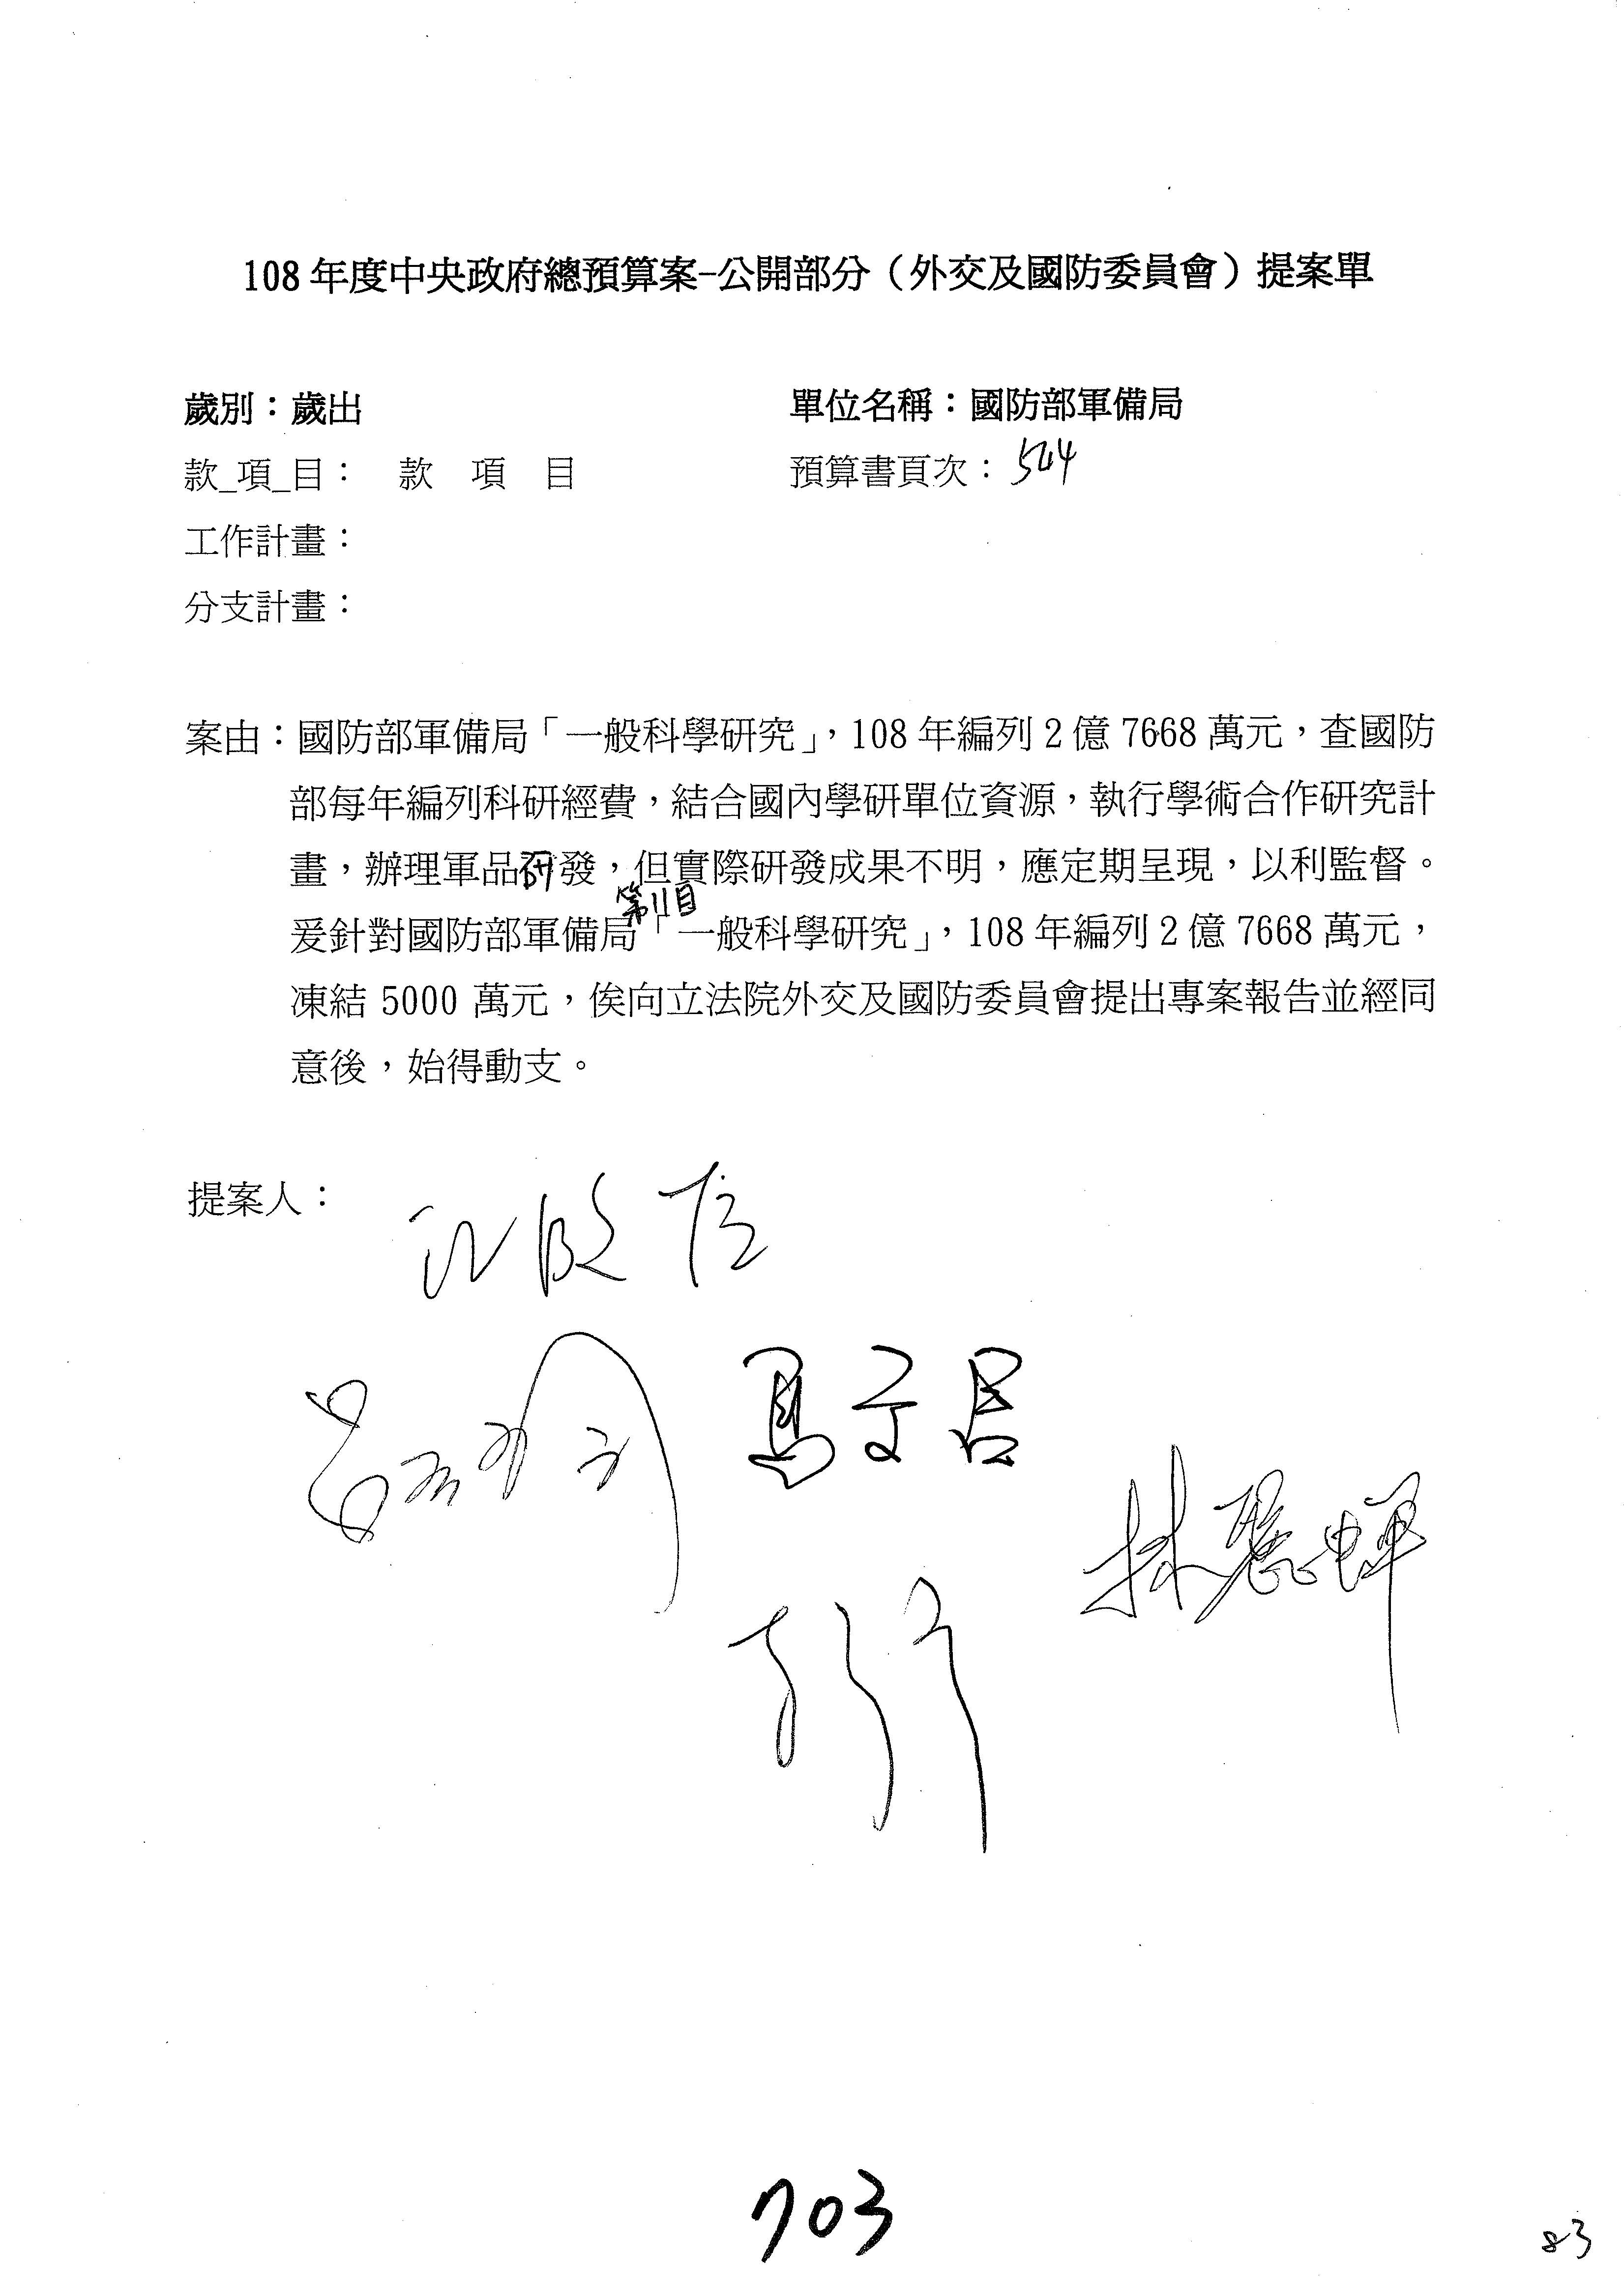 108 年度中央政府總預算案-公開部分（外交及國防委員會）提案單
歲別：歲出
單位名稱：國防部軍備局
款_項_目： 款 項 目
預算書頁次：544
工作計畫：
分支計畫：
案由：國防部軍備局「一般科學研究」，108 年編列 2 億 7668 萬元，查國防
部每年編列科研經費，結合國內學研單位資源，執行學術合作研究計
畫，辦理軍品研發，但實際研發成果不明，應定期呈現，以利監督。
第11目
爰針對國防部軍備局「一般科學研究」，108 年編列 2 億 7668 萬元，
凍結 5000 萬元，俟向立法院外交及國防委員會提出專案報告並經同
意後，始得動支。
提案人：
江啟臣
馬文君
林麗蟬
703
83